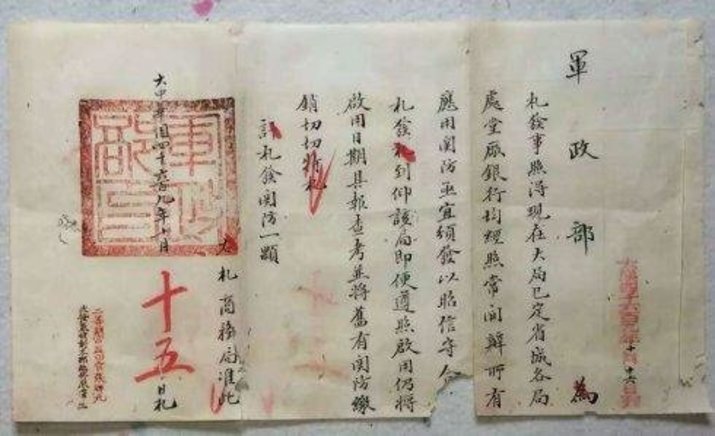 軍政部 為
札發事照得現在大局已定省城各局
處堂廠銀行均經照常開辦所有
應用関防亟宜頒發以昭信守合
札發札到仰該局即便遵照啟用仍將
啟用日期具報查考並將舊有関防繳
銷切切特札
計札發関防一顆
右札商務局准此
大中華國四千六百九年十月
十五日札